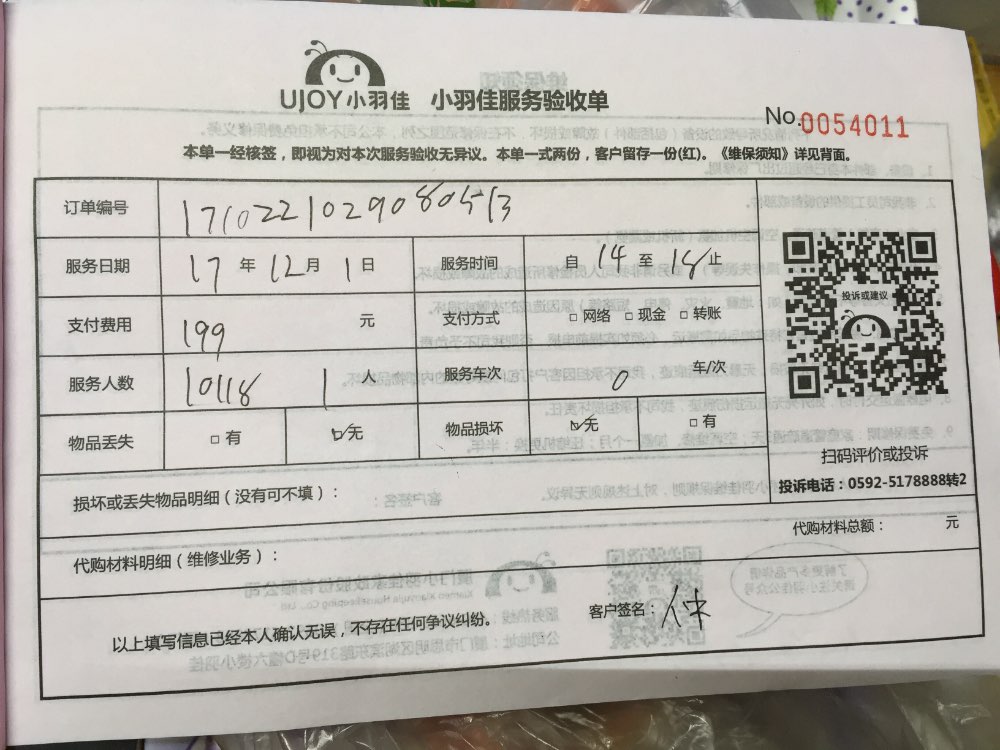 UJOY小羽佳 小羽佳服务验收单
No.0054011
本单一经核签，即视为对本次服务验收无异议。本单一式两份，客户留存一份(红)。《维保须知》详见背面。
订单编号 171022102908 80513
服务日期 17 年 12 月 1 日 服务时间 自 14 至 18 止
支付费用 199 元 支付方式 □ 网络 □ 现金 □ 转账
服务人数 10118 1 人 服务车次 0 车/次
物品丢失 □ 有 ☑ 无 物品损坏 ☑ 无 □ 有
投诉或建议
扫码评价或投诉
投诉电话：0592-5178888转2
损坏或丢失物品明细（没有可不填）：
代购材料总额： 元
代购材料明细（维修业务）：
客户签名：
以上填写信息已经本人确认无误，不存在任何争议纠纷。